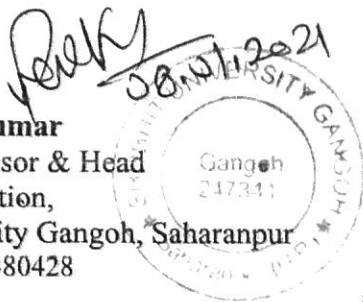 umar
sor & Head
tion,
ity Gangoh, Saharanpur
80428
UNIVERSITY GANGOH
Gangoh
247341